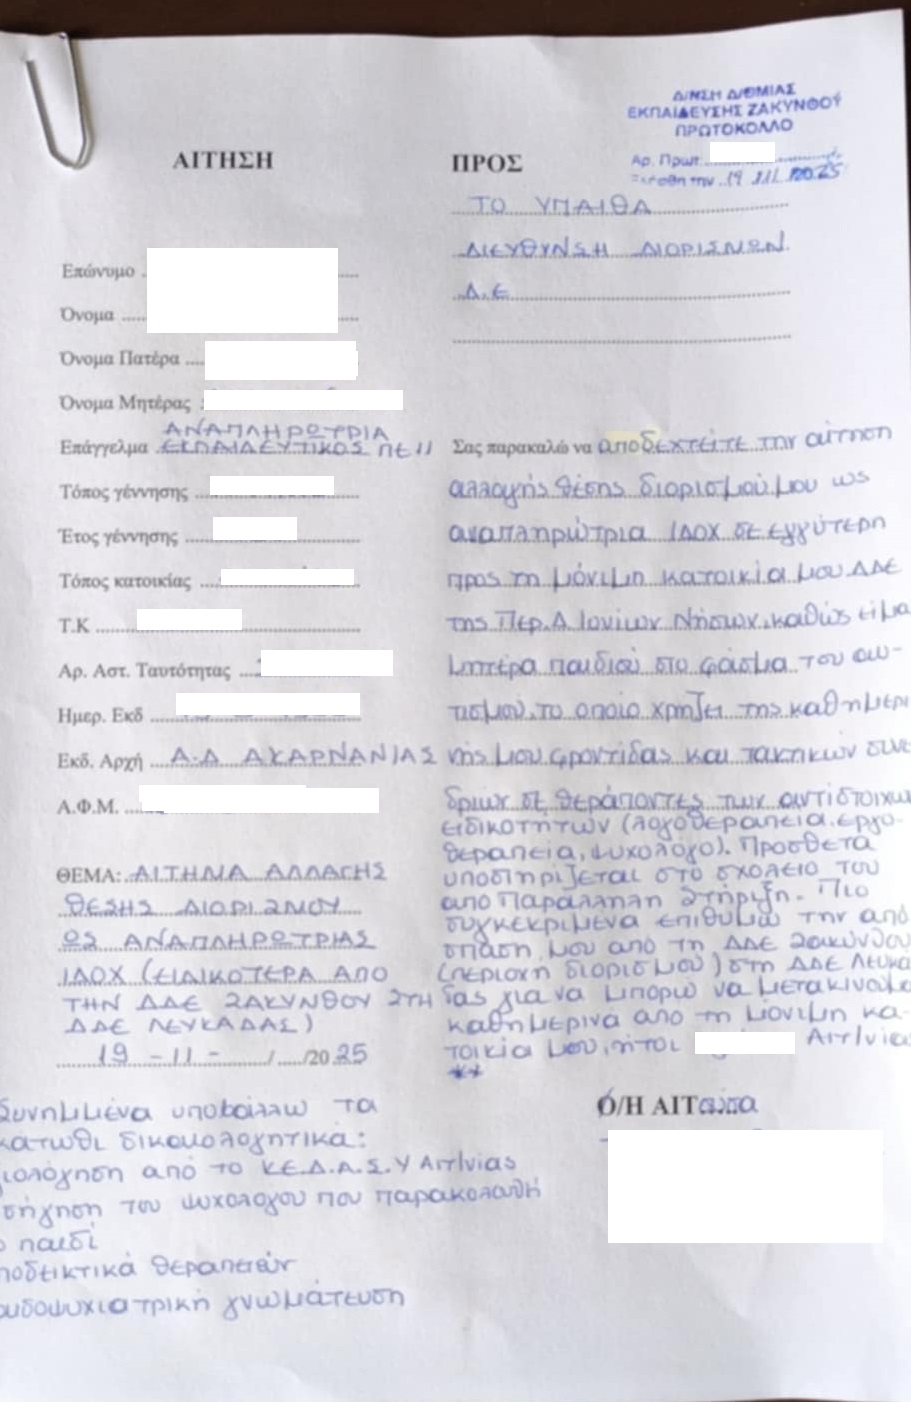 Δ/ΝΣΗ Δ/ΘΜΙΑΣ
ΕΚΠΑΙΔΕΥΣΗΣ ΖΑΚΥΝΘΟΥ
ΠΡΩΤΟΚΟΛΛΟ
Αρ. Πρωτ.
19 2025
ΑΙΤΗΣΗ
ΠΡΟΣ
ΤΟ ΥΠΑΙΘΑ
ΔΙΕΥΘΥΝΣΗ ΔΙΟΡΙΣΜΩΝ
Δ.Ε
Επώνυμο
Όνομα
Όνομα Πατέρα
Όνομα Μητέρας
Επάγγελμα ΑΝΑΠΛΗΡΩΤΡΙΑ
ΕΚΠΑΙΔΕΥΤΙΚΟΣ ΠΕ11
Τόπος γέννησης
Έτος γέννησης
Τόπος κατοικίας
Τ.Κ
Αρ. Αστ. Ταυτότητας
Ημερ. Εκδ
Εκδ. Αρχή Α-Δ ΑΚΑΡΝΑΝΙΑΣ
Α.Φ.Μ.
ΘΕΜΑ: ΑΙΤΗΜΑ ΑΛΛΑΓΗΣ
ΘΕΣΗΣ ΔΙΟΡΙΣΜΟΥ
ΩΣ ΑΝΑΠΛΗΡΩΤΡΙΑΣ
ΙΔΟΧ (ΕΙΔΙΚΟΤΕΡΑ ΑΠΟ
ΤΗΝ ΔΔΕ ΖΑΚΥΝΘΟΥ ΣΤΗ
ΔΔΕ ΛΕΥΚΑΔΑΣ)
19 - 11 - / /20 25
Σας παρακαλώ να αποδεχτείτε την αίτηση
αλλαγής θέσης διορισμού μου ως
αναπληρώτρια ΙΔΟΧ σε εγγύτερη
προς τη μόνιμη κατοικία μου ΔΔΕ
της Περ.Δ Ιονίων Νήσων, καθώς είμα
μητέρα παιδιού στο φάσμα του αυ-
τισμού, το οποίο χρήζει της καθημερι
νής μου φροντίδας και τακτικών συνε
δριών σε θεράποντες των αντίστοιχω
ειδικοτήτων (λογοθεραπεία, εργο-
θεραπεία, ψυχολόγο). Πρόσθετα
υποστηρίζεται στο σχολείο του
από Παράλληλη Στήριξη. Πιο
συγκεκριμένα επιθυμώ την από
σπάση μου από τη ΔΔΕ Ζακύνθου
(περιοχή διορισμού) στη ΔΔΕ Λευκά
δας για να μπορώ να μετακινούμα
καθημερινά από τη μόνιμη κα-
τοικία μου, ήτοι Αιτ/νίας
**
Ο/Η ΑΙΤούσα
Συνημμένα υποβάλλω τα
κάτωθι δικαιολογητικά:
ιολόγηση από το Κ.Ε.Δ.Α.Σ.Υ Αιτ/νίας
σήγηση του ψυχολόγου που παρακολουθή
ο παιδί
ποδεικτικά θεραπειών
αιδοψυχιατρική γνωμάτευση